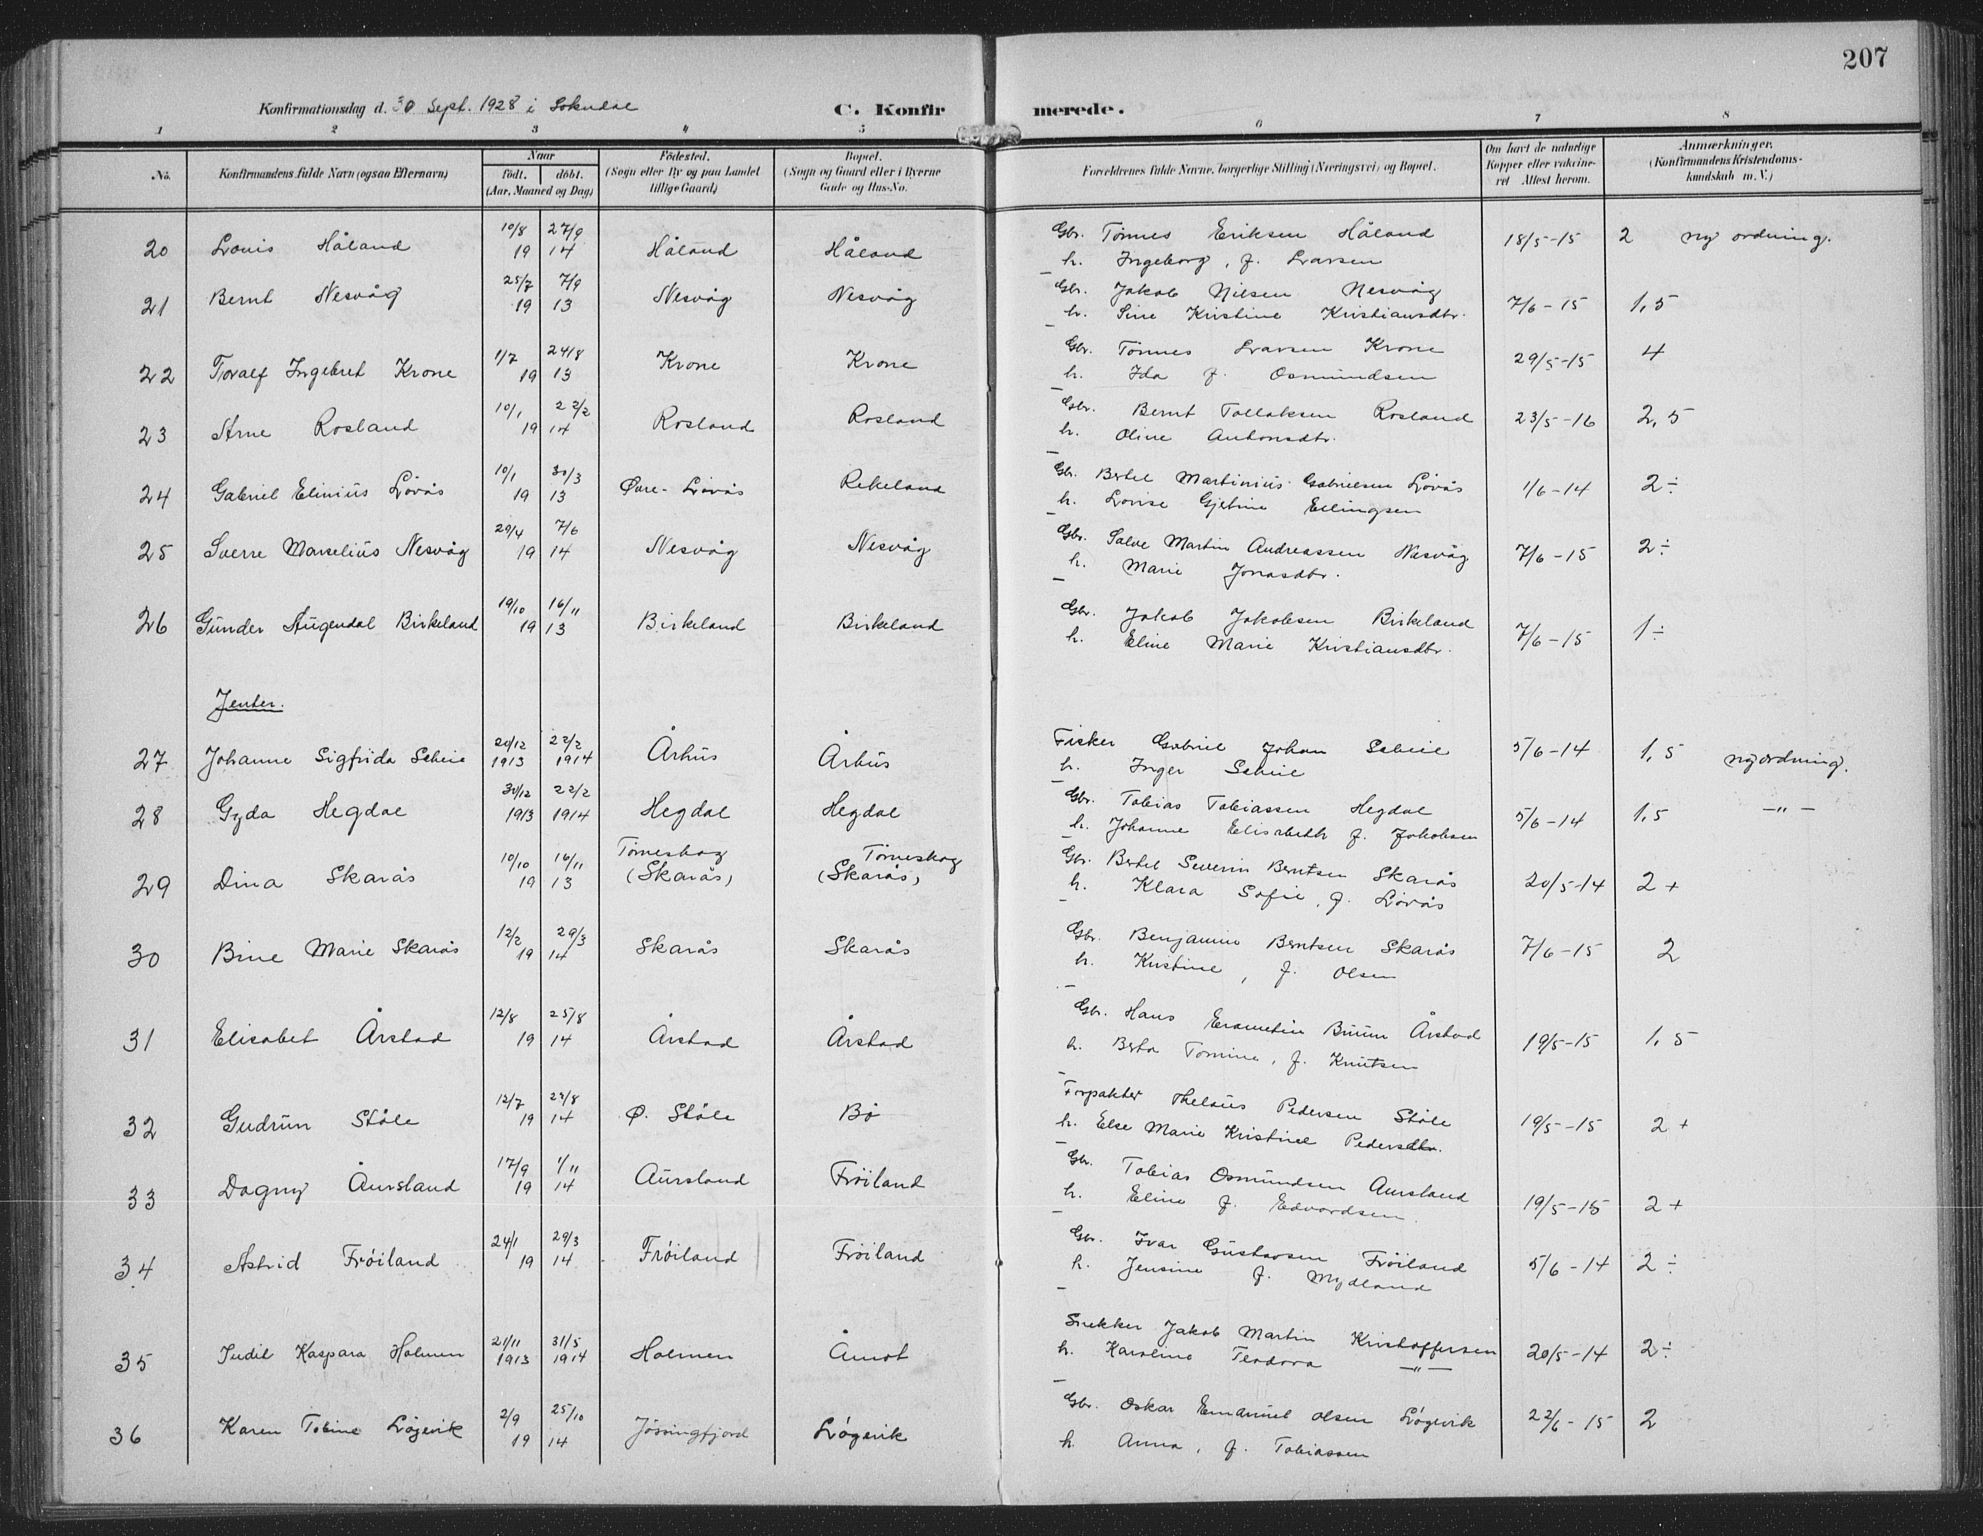 207
Konfirmationsdag d. 30 Sept. 1928 i Sokndal
C. Konfirmerede.
1 2 3 4 5 6 7 8
No. Konfirmandens fulde Navn (ogsaa Efternavn) Naar født. døbt. (Aar, Maaned og Dag) Fødested. (Sogn eller By og paa Landet tillige Gaard) Bopæl. (Sogn og Gaard eller i Byerne Gade og Hus-No. Forældrenes fulde Navne, borgerlige Stilling (Næringsvei) og Bopæl. Om havt de naturlige Kopper eller vaccineret Attest herom. Anmærkninger. (Konfirmandens Kristendomskundskab m. V.)
20 Louis Håland 10/8 27/9 19 14 Håland Håland Gbr. Tønnes Eriksen Håland 18/5-15 2 ny ordning.
h. Ingeborg, f. Larsen
21 Bernt Nesvåg 25/7 7/9 19 13 Nesvåg Nesvåg Gbr. Jakob Nilsen Nesvåg 7/6-15 1,5
h. Sine Kristine Kristiansdtr.
22 Toralf Ingebret Krone 1/7 24/8 19 13 Krone Krone Gbr. Tønnes Larsen Krone 29/5-15 4
h. Ida f. Osmundsen
23 Arne Rosland 10/1 22/2 19 14 Rosland Rosland Gbr. Bernt Tollaksen Rosland 23/5-16 2,5
h. Oline Antonsdtr.
24 Gabriel Elinius Løvås 10/1 30/3 19 13 Øvre-Løvås Rekeland Gbr. Bertel Martinius Gabrielsen Løvås 1/6-14 2÷
h. Lovise Gjetine Ellingsen
25 Sverre Marselius Nesvåg 29/4 7/6 19 14 Nesvåg Nesvåg Gbr. Salve Martin Andreassen Nesvåg 7/6-15 2÷
h. Marie Jonasdtr.
26 Gunder Augendal Birkeland 19/10 16/11 19 13 Birkeland Birkeland Gbr. Jakob Jakobsen Birkeland 7/6-15 1÷
h. Eline Marie Kristiansdtr.
Jenter.
27 Johanne Sigfrida Scheie 20/12 1913 22/2 1914 Århus Århus Fisker Gabriel Johan Scheie 5/6-14 1,5 ny ordning.
h. Inger Scheie
28 Gyda Hegdal 30/12 1913 22/2 1914 Hegdal Hegdal Gbr. Tobias Tobiassen Hegdal 5/6-14 1,5 -"-
h. Johanne Elisabeth f. Jakobsen
29 Dina Skarås 10/10 16/11 19 13 Tørneskog (Skarås) Tørneskog (Skarås) Gbr. Bertel Severin Berntsen Skarås 20/5-14 2+
h. Klara Sofie, f. Løvås
30 Bine Marie Skarås 12/2 29/3 19 14 Skarås Skarås Gbr. Benjamin Berntsen Skarås 7/6-15 2
h. Kristine, f. Olsen
31 Elisabet Årstad 12/8 25/8 19 14 Årstad Årstad Gbr. Hans Bruun Årstad 19/5-15 1,5
h. Berta Tomine, f. Knutsen
32 Gudrun Ståle 12/7 22/8 19 14 Ø. Ståle Bø Forpakter Thelaus Pedersen Ståle 19/5-15 2+
h. Else Marie Kristine Pedersdtr.
33 Dagny Åursland 17/9 1/11 19 14 Aursland Frøiland Gbr. Tobias Osmundsen Aursland 19/5-15 2+
h. Eline f. Edvardsen
34 Astrid Frøiland 24/1 29/3 19 14 Frøiland Frøiland Gbr. Ivar Gustavsen Frøiland 5/6-14 2÷
h. Jensine f. Mydland
35 Judit Kaspara Holmen 21/11 1913 31/5 1914 Holmen Åmot Snekker Jakob Martin Kristoffersen 20/5-14 2÷
h. Karoline Teodora -"-
36 Karen Tobine Løgevik 2/9 25/10 19 14 Jøssingfjord Løgevik Gbr. Oskar Emanuel Olsen Løgevik 22/6-15 2
h. Anna, f. Tobiassen